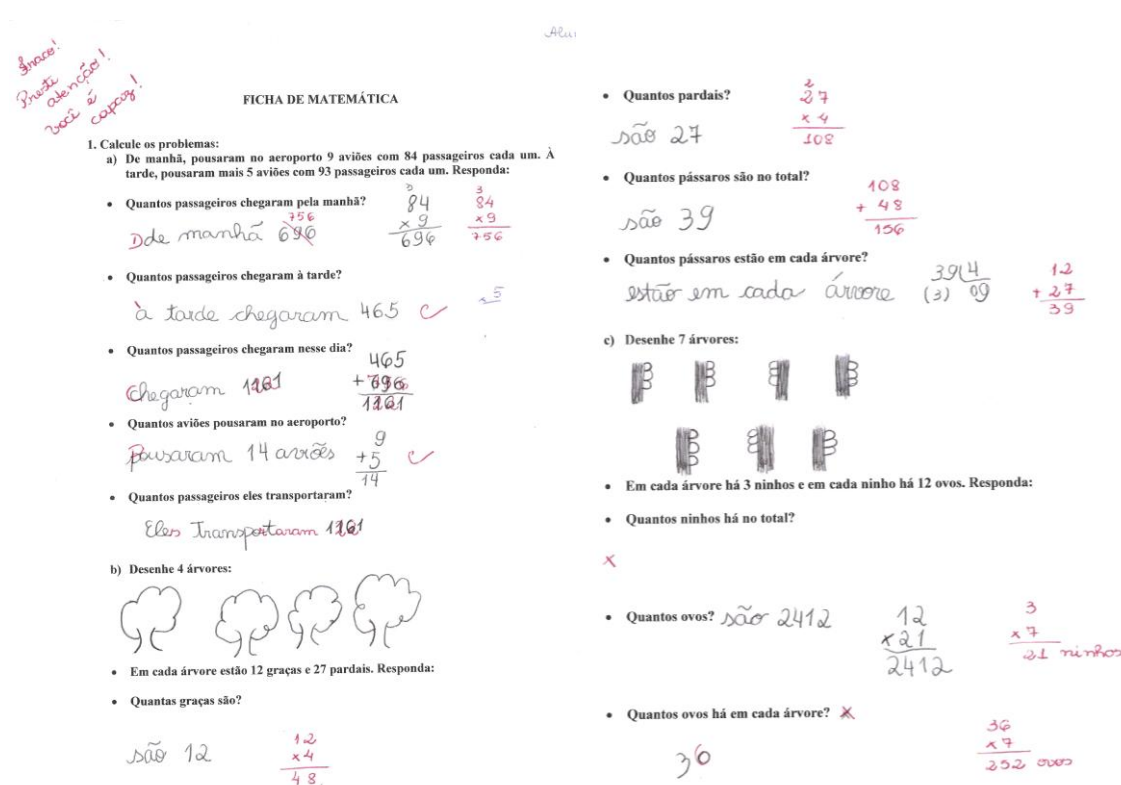 Alu
Fraco!
Preste
atenção!
Você é
capaz!
FICHA DE MATEMÁTICA
1. Calcule os problemas:
a) De manhã, pousaram no aeroporto 9 aviões com 84 passageiros cada um. À
tarde, pousaram mais 5 aviões com 93 passageiros cada um. Responda:
• Quantos passageiros chegaram pela manhã?
756
Dde manhã 696
3
84
x 9
696
3
84
x 9
756
• Quantos passageiros chegaram à tarde?
à tarde chegaram 465
x 5
• Quantos passageiros chegaram nesse dia?
Chegaram
465
+
• Quantos aviões pousaram no aeroporto?
Pousaram 14 aviões
9
+ 5
14
• Quantos passageiros eles transportaram?
Eles Transportaram
b) Desenhe 4 árvores:
• Em cada árvore estão 12 graças e 27 pardais. Responda:
• Quantas graças são?
são 12
12
x 4
48
• Quantos pardais?
são 27
2
27
x 4
108
• Quantos pássaros são no total?
são 39
108
+ 48
156
• Quantos pássaros estão em cada árvore?
estão em cada árvore
39 4
(3) 09
12
+ 27
39
c) Desenhe 7 árvores:
• Em cada árvore há 3 ninhos e em cada ninho há 12 ovos. Responda:
• Quantos ninhos há no total?
x
• Quantos ovos? são 2412
12
x 21
2412
3
x 7
21 ninhos
• Quantos ovos há em cada árvore? x
36
36
x 7
252 ovos